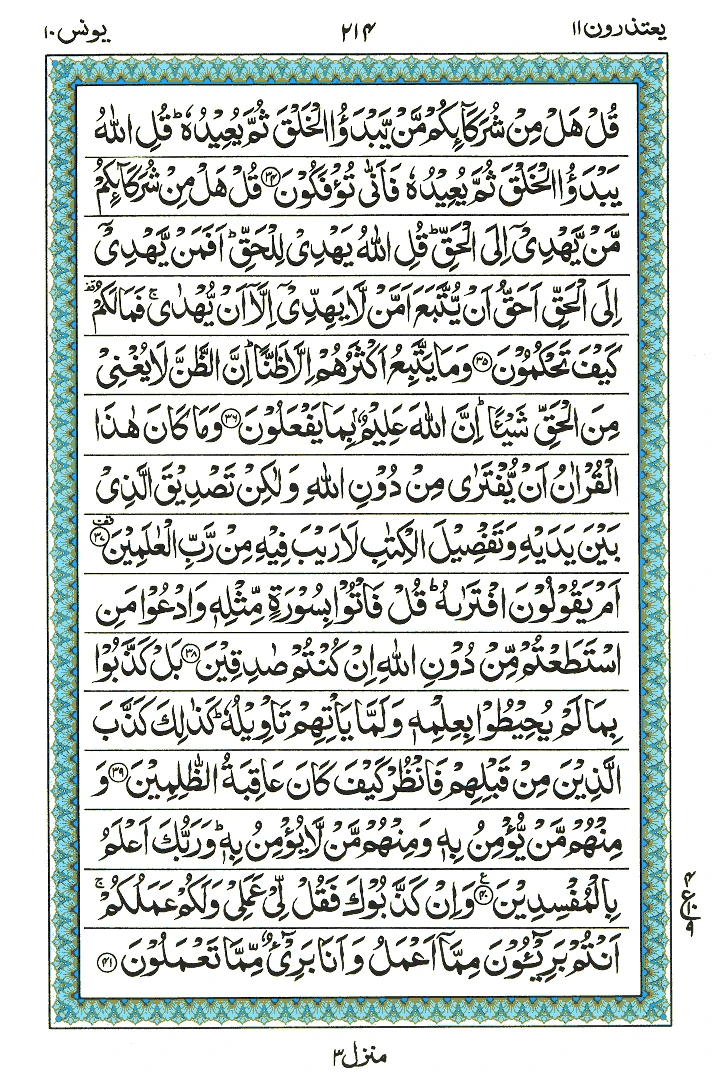 یعتذرون ۱۱ ۲۱۴ یونس ۱۰
قُلْ هَلْ مِنْ شُرَكَآئِكُمْ مَّنْ یَّبْدَؤُا الْخَلْقَ ثُمَّ یُعِیْدُهٗ ؕ قُلِ اللّٰهُ
یَبْدَؤُا الْخَلْقَ ثُمَّ یُعِیْدُهٗ فَاَنّٰی تُؤْفَكُوْنَ ﴿۳۴﴾ قُلْ هَلْ مِنْ شُرَكَآئِكُمْ
مَّنْ یَّهْدِیْۤ اِلَی الْحَقِّ ؕ قُلِ اللّٰهُ یَهْدِیْ لِلْحَقِّ ؕ اَفَمَنْ یَّهْدِیْۤ
اِلَی الْحَقِّ اَحَقُّ اَنْ یُّتَّبَعَ اَمَّنْ لَّا یَهِدِّیْۤ اِلَّاۤ اَنْ یُّهْدٰی ۚ فَمَا لَكُمْ ۫
كَیْفَ تَحْكُمُوْنَ ﴿۳۵﴾ وَمَا یَتَّبِعُ اَكْثَرُهُمْ اِلَّا ظَنًّا ؕ اِنَّ الظَّنَّ لَا یُغْنِیْ
مِنَ الْحَقِّ شَیْـًٔا ؕ اِنَّ اللّٰهَ عَلِیْمٌۢ بِمَا یَفْعَلُوْنَ ﴿۳۶﴾ وَمَا كَانَ هٰذَا
الْقُرْاٰنُ اَنْ یُّفْتَرٰی مِنْ دُوْنِ اللّٰهِ وَلٰكِنْ تَصْدِیْقَ الَّذِیْ
بَیْنَ یَدَیْهِ وَتَفْصِیْلَ الْكِتٰبِ لَا رَیْبَ فِیْهِ مِنْ رَّبِّ الْعٰلَمِیْنَ ﴿۳۷﴾ قف
اَمْ یَقُوْلُوْنَ افْتَرٰىهُ ؕ قُلْ فَاْتُوْا بِسُوْرَةٍ مِّثْلِهٖ وَادْعُوْا مَنِ
اسْتَطَعْتُمْ مِّنْ دُوْنِ اللّٰهِ اِنْ كُنْتُمْ صٰدِقِیْنَ ﴿۳۸﴾ بَلْ كَذَّبُوْا
بِمَا لَمْ یُحِیْطُوْا بِعِلْمِهٖ وَلَمَّا یَاْتِهِمْ تَاْوِیْلُهٗ ؕ كَذٰلِكَ كَذَّبَ
الَّذِیْنَ مِنْ قَبْلِهِمْ فَانْظُرْ كَیْفَ كَانَ عَاقِبَةُ الظّٰلِمِیْنَ ﴿۳۹﴾ وَ
مِنْهُمْ مَّنْ یُّؤْمِنُ بِهٖ وَمِنْهُمْ مَّنْ لَّا یُؤْمِنُ بِهٖ ؕ وَرَبُّكَ اَعْلَمُ
بِالْمُفْسِدِیْنَ ﴿۴۰﴾ ع وَاِنْ كَذَّبُوْكَ فَقُلْ لِّیْ عَمَلِیْ وَلَكُمْ عَمَلُكُمْ ۚ
اَنْتُمْ بَرِیْٓـُٔوْنَ مِمَّاۤ اَعْمَلُ وَاَنَا بَرِیْٓءٌ مِّمَّا تَعْمَلُوْنَ ﴿۴۱﴾
۴
ع ۱۰
۹
منزل ۳